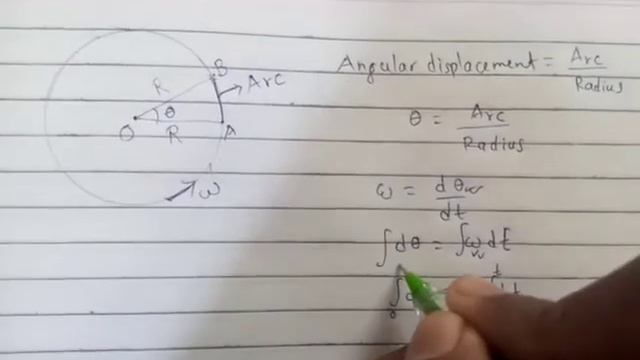 B
R
Arc
θ
O
R
A
ω
Angular displacement = Arc
Radius
θ = Arc
Radius
ω = dθ
dt
∫dθ = ∫ω dt